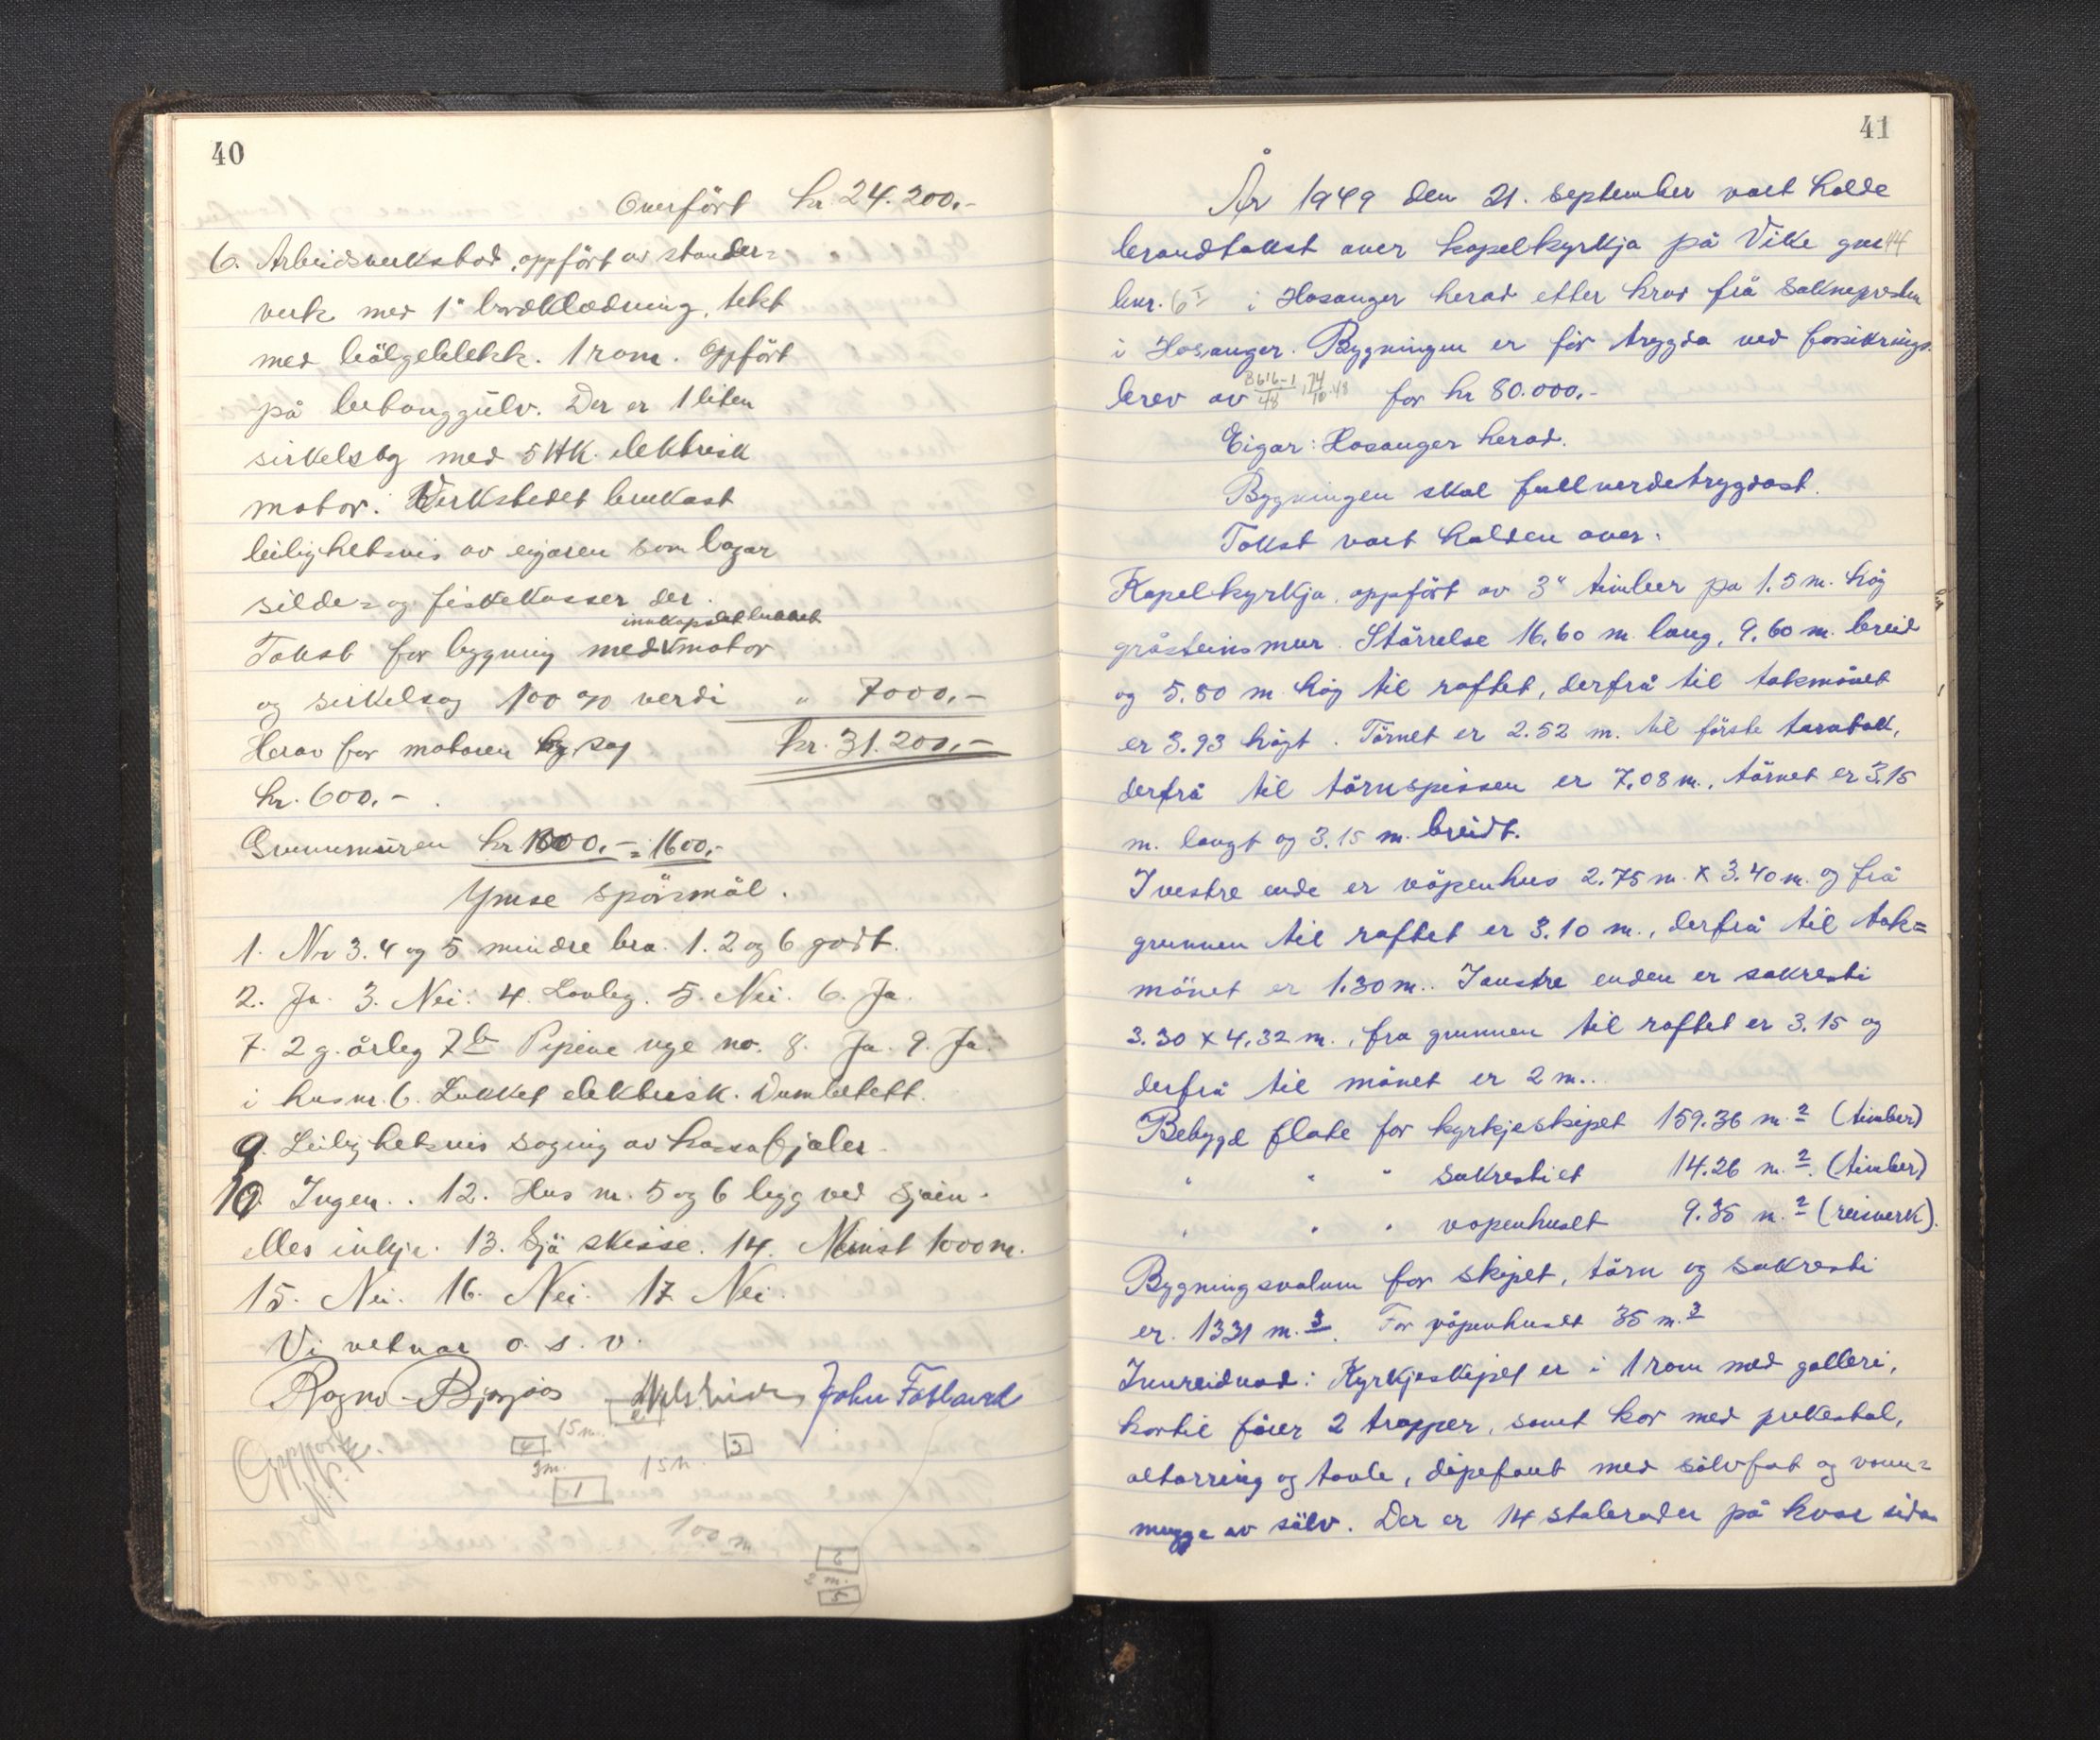 40
Overfört kr. 24.200.-
6. Arbeidsverkstad, oppfört av stander=
verk med 1" bordkledning, tekt
med bölgeblekk. 1 rom. Oppfört
på betonggulv. Der er 1 liten
sirkelsag med 5 HK. elektrisk
motor. Verkstedet brukast
leilighetsvis av eigaren som lagar
silde= og fiskekasser der.
innkapslet lukket
Takst for bygning med motor
og sirkelsag 100 % verdi " 7000.-
Herav for motoren og sag kr. 31.200.-
kr. 600.-
Grunnmuren kr 1600.- = 1600.-
Ymse spörsmål.
1. Nr 3. 4 og 5 mindre bra. 1. 2 og 6 godt.
2. Ja. 3. Nei. 4. Lovleg. 5. Nei. 6. Ja.
7. 2 g. årleg 7b Pipene nye no. 8. Ja. 9. Ja.
i hus nr. 6. Lukket elektrisk.
9. Leilighetsvis saging av kassafjøler.
10. Ingen.. 12. Hus nr. 5 og 6 ligg ved sjøen.
elles inkje. 13. Sjå skisse. 14. Minst 1000 m.
15. Nei. 16. Nei. 17. Nei.
Vi vetnar o. s. v.
Ragnv. Bjørgaas John Fotland
15 m.
4 3
3 m. 15 m.
1
100 m
6
2 m.
5
41
År 1949 den 21. september vart halde
brandtakst over kapelkyrkja på Vike gnr 44
bnr. 6 I i Hosanger herad etter krav frå sokneprsten
i Hosanger. Bygningen er för trygda ved forsikrings=
brev av 3616-1/48, 14/10.48 for kr 80.000.-
Eigar: Hosanger herad.
Bygningen skal fullverdetrygdast.
Takst vart halden over:
Kapelkyrkja, oppfört av 3" timber pa 1.5 m. hög
gråsteinsmur. Störrelse 16.60 m. lang, 9.60 m. breid
og 5.80 m hög til raftet, derfrå til takmönet
er 3.93 högt. Tårnet er 2.52 m. til förste tarntak,
derfrå til tårnspissen er 7.08 m., tårnet er 3.15
m. langt og 3.15 m. breidt.
I vestre ende er våpenhus 2.75 m. x 3.40 m. og frå
grunnen til raftet er 3.10 m., derfrå til tak=
mönet er 1.30 m.. I austre enden er sakresti
3.30 x 4.32 m., fra grunnen til raftet er 3.15 og
derfrå til mönet er 2 m..
Bebygd flate for kyrkjeskipet 159.36 m.² (timber)
" " " sakrestiet 14.26 m.² (timber)
" " " vapenhuset 9.35 m.² (reisverk).
Bygningsvolum for skipet, tårn og sakresti
er. 1331 m.³. For våpenhuset 35 m.³
Innreidnad: Kyrkjeskipet er i 1 rom med galleri,
kortil förer 2 trapper, samt kor med prekestol,
altarring og tavle, döpefont med sölvfat og vann=
mugge av sölv. Der er 14 stolerader på kvar sida